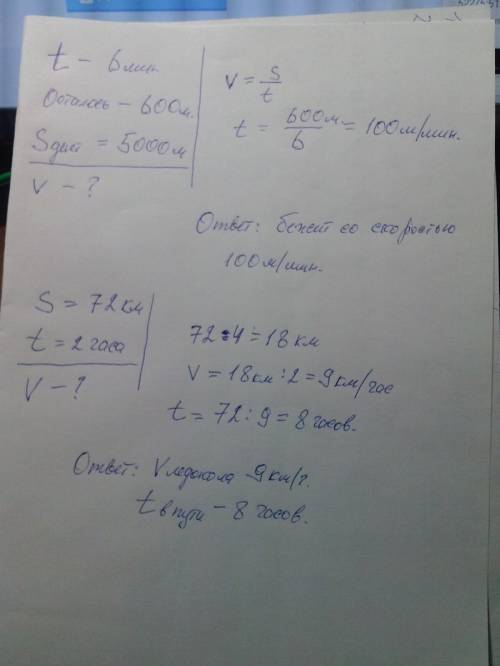 t - 6 мин.
Осталось - 600 м.
S дист = 5000 м
V - ?
V = S/t
t = 600 м/6 = 100 м/мин.
Ответ: бежит со скоростью
100 м/мин.
S = 72 км
t = 2 часа
V - ?
72 : 4 = 18 км
V = 18 км : 2 = 9 км/час
t = 72 : 9 = 8 часов.
Ответ: V ледокола 9 км/г.
t в пути - 8 часов.